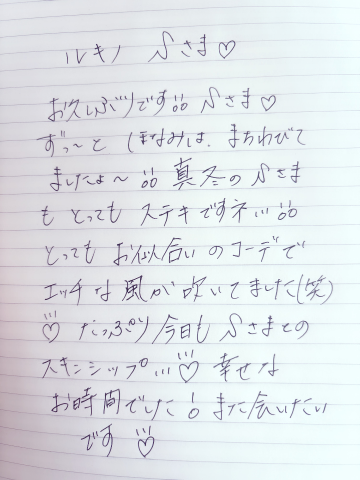 ルキノ Sさま♡
お久しぶりです!! Sさま♡
ずっ〜と ほなみは、まちわびて
ましたょ〜!! 真冬のSさま
も とっても ステキですネ…!!
とっても お似合いのコーデで
エッチな風が吹いてました(笑)
♡ たっぷり今日もSさまとの
スキンシップ…♡ 幸せな
お時間でした! また会いたい
です♡